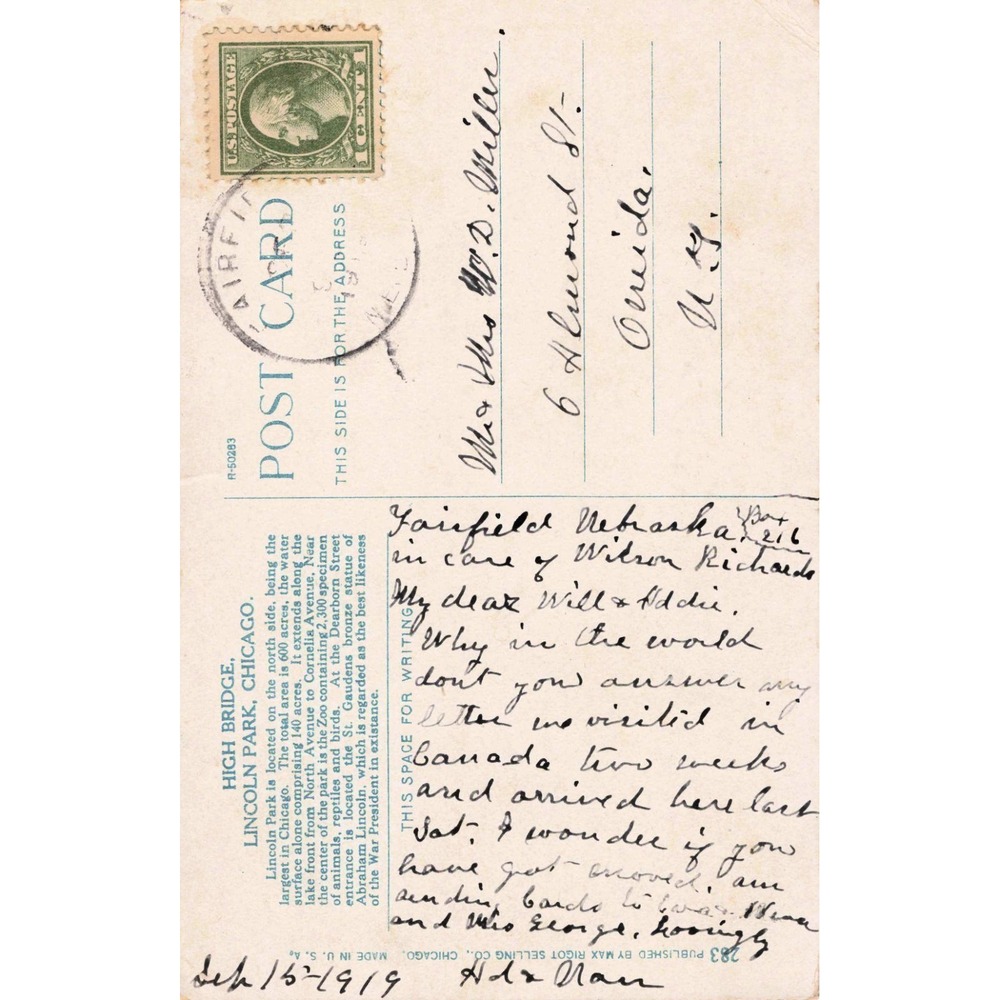 U.S. POSTAGE
1 CENT 1
AIRFI
R-50283
POST CARD
THIS SIDE IS FOR THE ADDRESS
Mr & Mrs W. D. Miller.
6 Elmond St.
Oneida.
N. Y.
HIGH BRIDGE,
LINCOLN PARK, CHICAGO.
Lincoln Park is located on the north side, being the
largest in Chicago. The total area is 600 acres, the water
surface alone comprising 140 acres. It extends along the
lake front from North Avenue to Cornelia Avenue. Near
the center of the park is the Zoo containing 2,300 specimen
of animals, reptiles and birds. At the Dearborn Street
entrance is located the St. Gaudens bronze statue of
Abraham Lincoln, which is regarded as the best likeness
of the War President in existance.
THIS SPACE FOR WRITING
Fairfield Nebraska. Box 216
in care of Wilson Richards
My dear Will & Addie.
Why in the world
dont you answer my
letter we visited in
Canada two weeks
and arrived here last
Sat. I wonder if you
have got moved. am
sending Cards to
and Mrs George. Lovingly
Ad & Nan
Sep 15-1919
283 PUBLISHED BY MAX RIGOT SELLING CO., CHICAGO. MADE IN U. S. A.